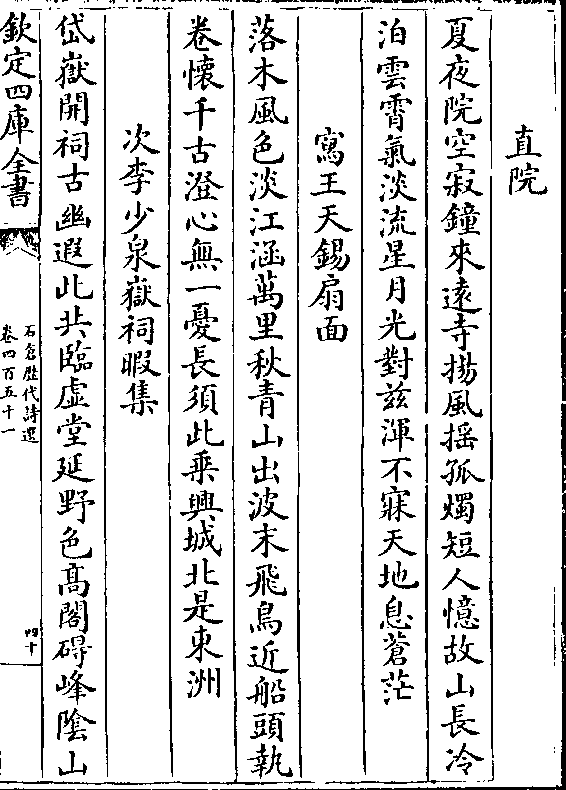 直院
夏夜院空寂鐘來遠寺揚風搖孤燭短人憶故山長冷
泊雲霄氣淡流星月光對茲渾不寐天地息蒼茫
寫王天錫扇面
落木風色淡江涵萬里秋青山出波末飛鳥近船頭執
卷懷千古澄心無一憂長須此乘興城北是東洲
次李少泉嶽祠暇集
岱嶽開祠古幽遐此共臨虛堂延野色高閣碍峰陰山
欽定四庫全書
石倉歷代詩選
卷四百五十一
四十